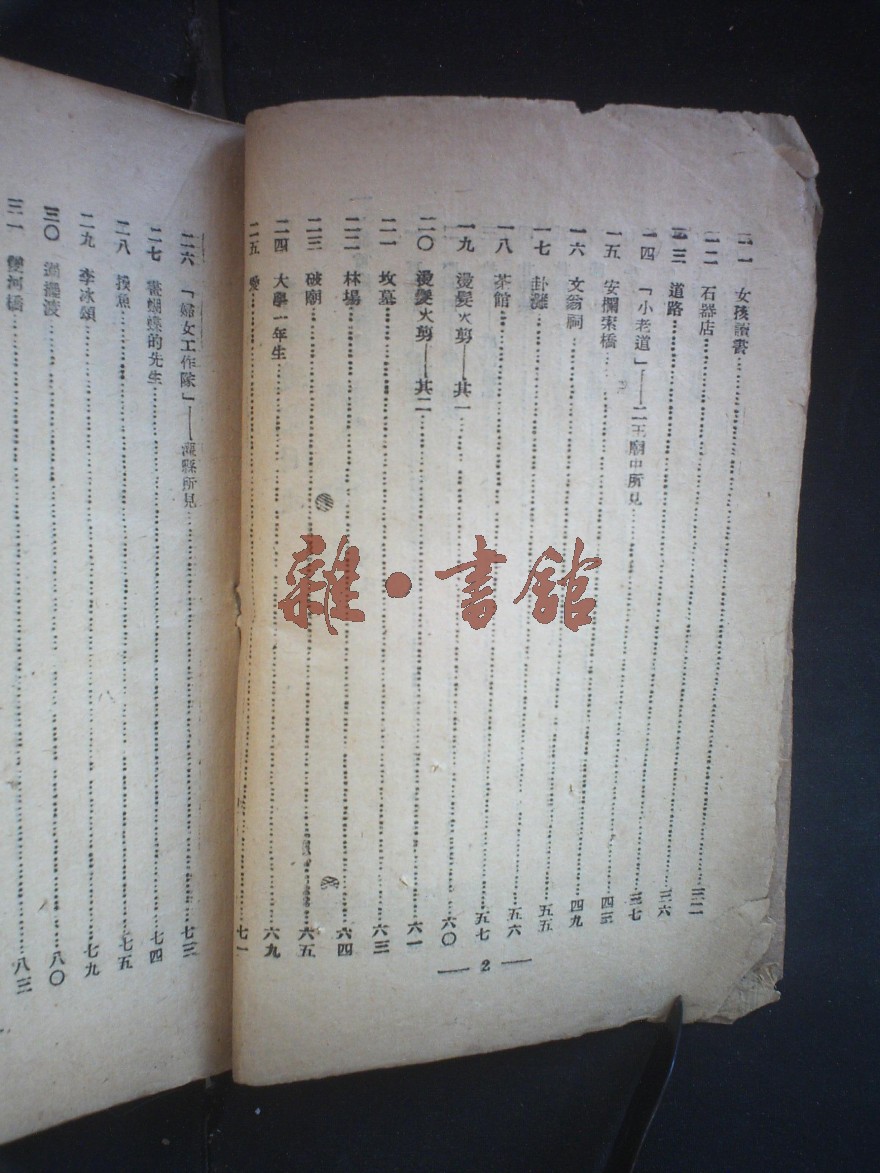 一一 女孩讀書
一二 石器店 三二
一三 道路 三六
一四 「小老道」——二王廟中所見 三七
一五 安瀾索橋 四三
一六 文翁祠 四九
一七 卦攤 五五
一八 茶館 五六
一九 燙髮火剪——其一 五七
二〇 燙髮火剪——其二 六〇
二一 坟墓 六一
二二 林場 六三
二三 破廟 六四
二四 大學一年生 六五
二五 愛 六九
七一
— 2 —
二六 「婦女工作隊」——縣所見 七三
二七 蝴蝶的先生 七四
二八 魚 七五
二九 李冰頌 七九
三〇 八〇
三一 河橋 八三
雜·書館